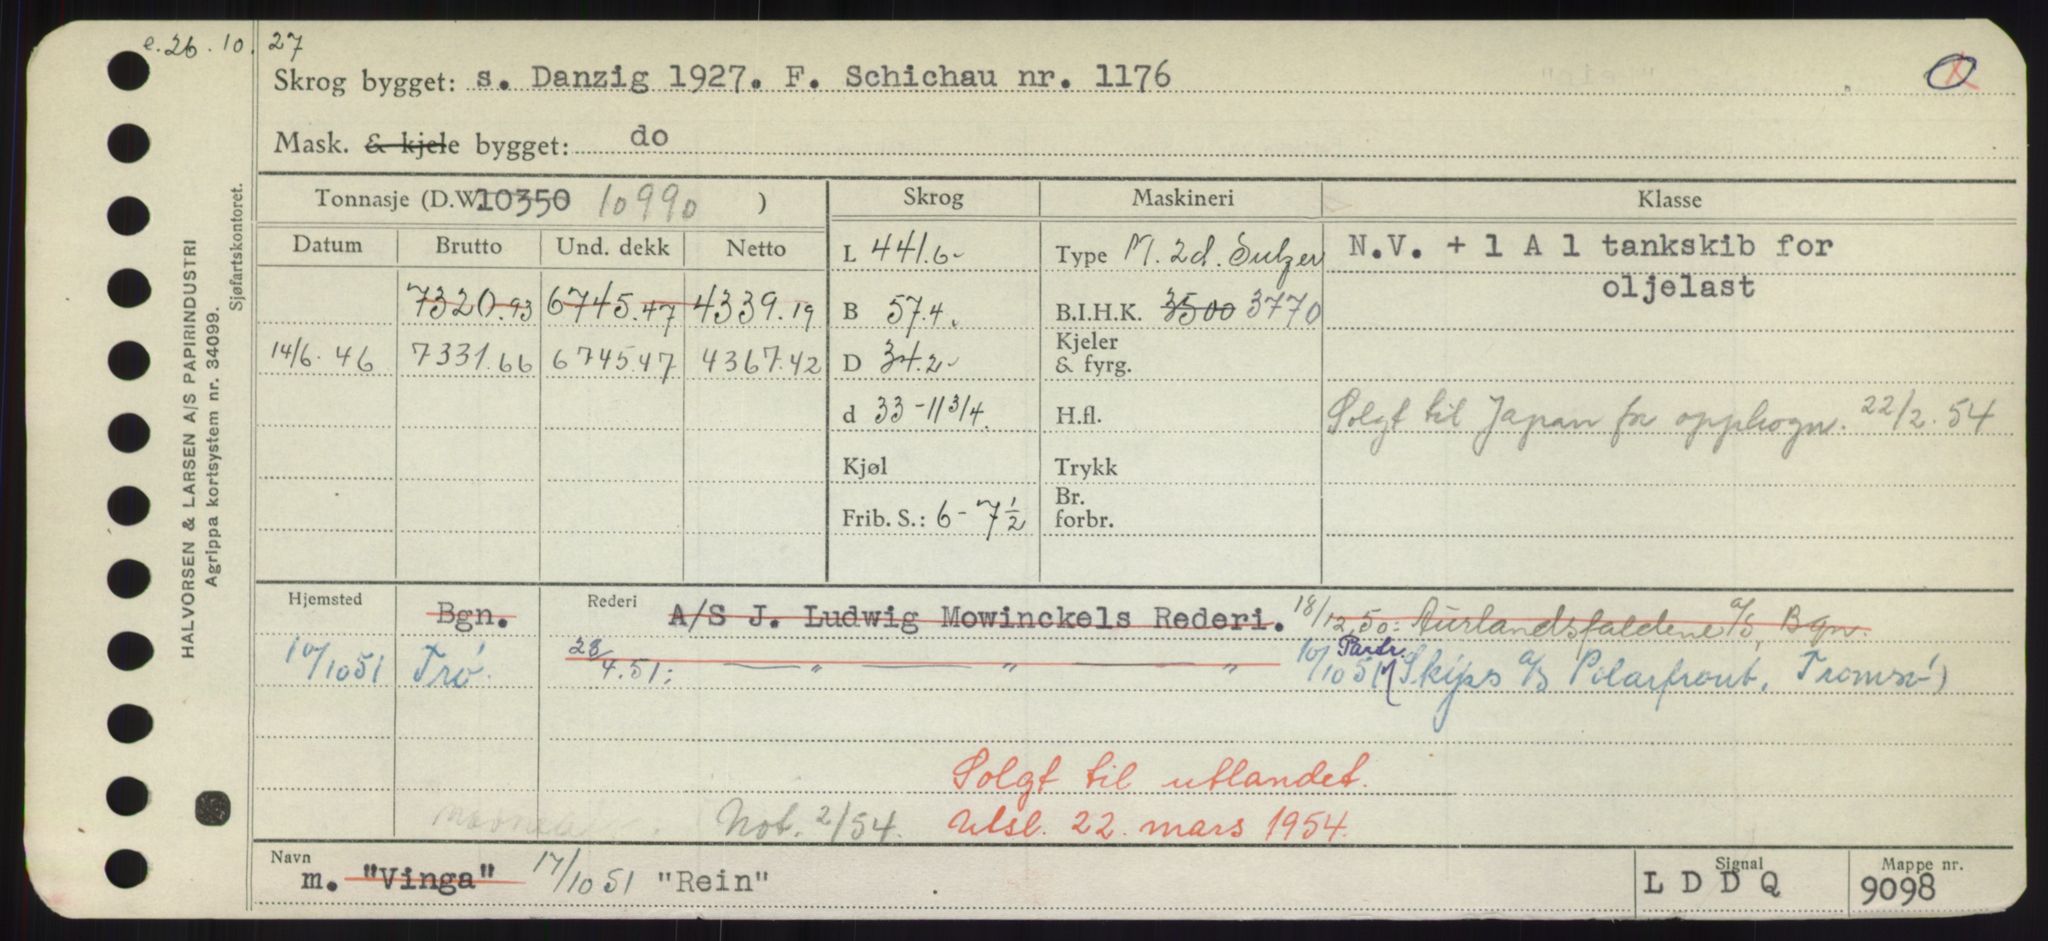 e. 26. 10. 27
Skrog bygget: s. Danzig 1927. F. Schichau nr. 1176
Mask. & kjele bygget: do
Tonnasje (D.W. 10350 10990 )
Skrog
Maskineri
Klasse
Datum Brutto Und. dekk Netto
L 441.6
Type M. 2d. Sulzer
N.V. + 1 A 1 tankskib for
oljelast
7320.93 6745.47 4339.19
B 57.4.
B.I.H.K. 3500 3770
14/6.46 7331.66 6745.47 4367.42
D 34.2
Kjeler
& fyrg.
d 33-11 3/4.
H.fl.
Solgt til Japan for opphogn. 22/2.54
Kjøl
Trykk
Frib. S.: 6-7 1/2
Br.
forbr.
Hjemsted Bgn. Rederi A/S J. Ludwig Mowinckels Rederi. 18/12.50: Aurlandsfaldene a/s, Bgn.
10/10 51 Trö. 28/4.51: — " — " — " 10/10 51 Partr. (Skips a/s Polarfront, Tromsö)
Solgt til utlandet.
Not. 2/54. Utsl. 22. mars 1954.
Navn m. "Vinga" 17/10 51 "Rein"
Signal
L D D Q
Mappe nr.
9098
HALVORSEN & LARSEN A/S PAPIRINDUSTRI
Agrippa kortsystem nr. 34099.
Sjøfartskontoret.